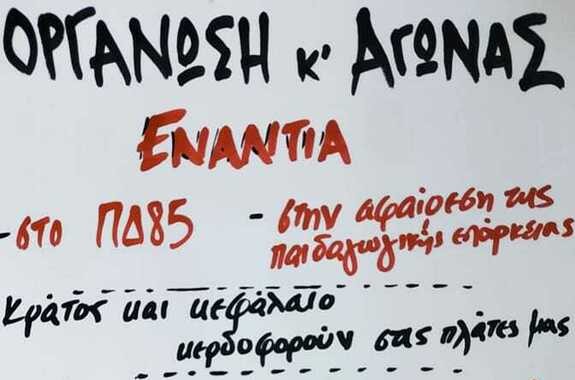 ΟΡΓΑΝΩΣΗ Κ' ΑΓΩΝΑΣ
ΕΝΑΝΤΙΑ
- ΣΤΟ ΠΔ85 - στην αφαίρεση της
παιδαγωγικής επάρκειας
Κράτος και κεφάλαιο
κερδοφορούν στις πλάτες μας